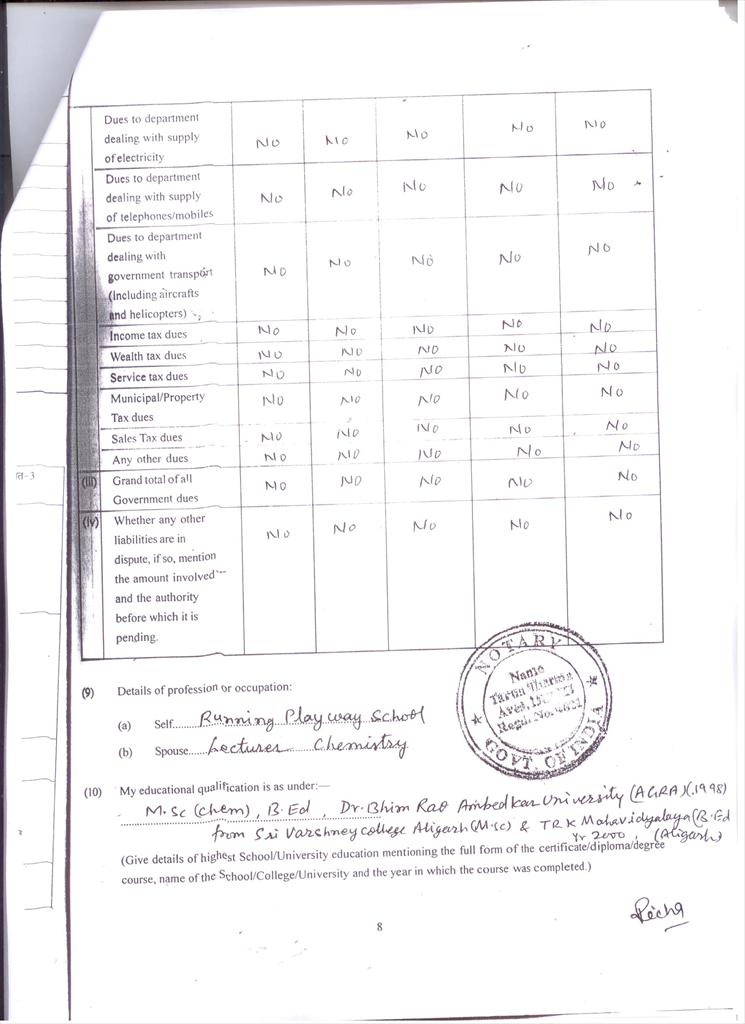 Dues to department
dealing with supply
of electricity
No No No No No
Dues to department
dealing with supply
of telephones/mobiles
No No No No No
Dues to department
dealing with
government transport
(including aircrafts
and helicopters)
No No No No No
Income tax dues No No No No No
Wealth tax dues No No No No No
Service tax dues No No No No No
Municipal/Property
Tax dues
No No No No No
Sales Tax dues No No No No No
Any other dues No No No No No
(iii) Grand total of all
Government dues
No No No No No
(iv) Whether any other
liabilities are in
dispute, if so, mention
the amount involved
and the authority
before which it is
pending.
No No No No No
त-3
NOTARY
Name
GOVT. OF INDIA
(9) Details of profession or occupation:
(a) Self........Running Play way School
(b) Spouse......Lecturer Chemistry
(10) My educational qualification is as under:—
M.Sc (chem), B.Ed, Dr. Bhim Rao Ambedkar University (AGRA)(1998)
from Sri Varshney college Aligarh (M.sc) & TRK Mahavidyalaya (B.Ed
Yr 2000, (Aligarh)
(Give details of highest School/University education mentioning the full form of the certificate/diploma/degree
course, name of the School/College/University and the year in which the course was completed.)
8